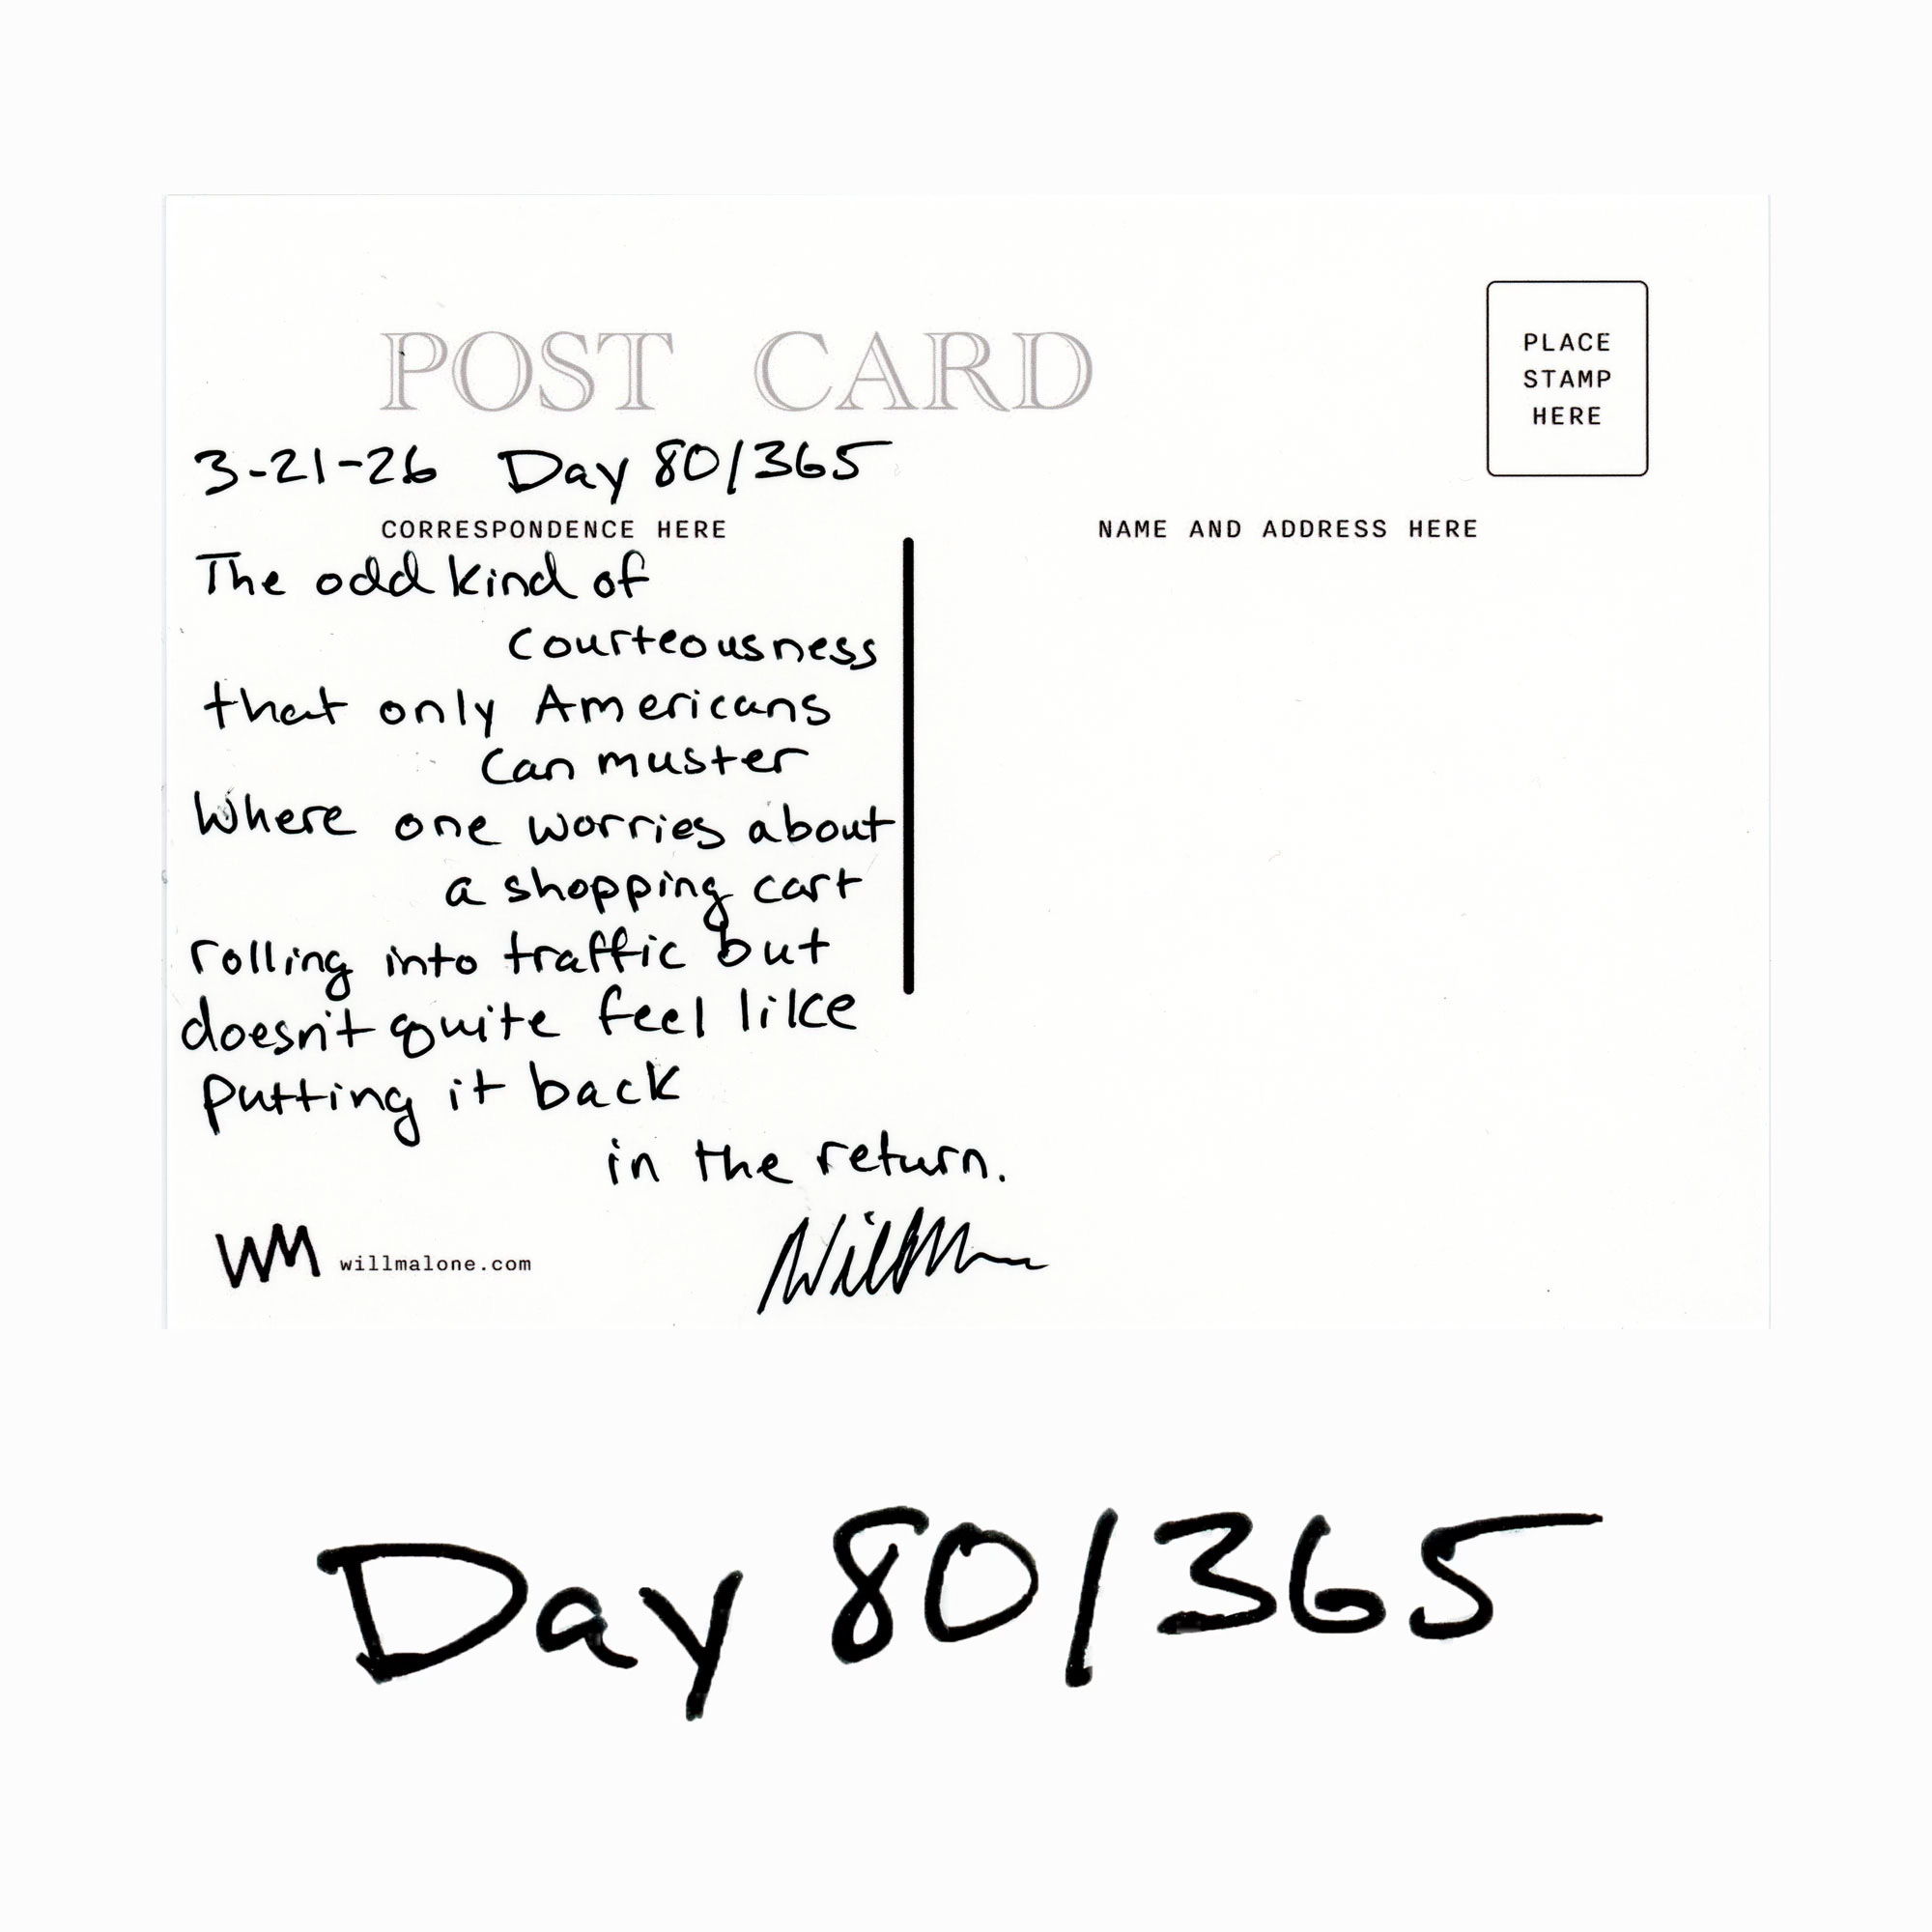 POST CARD
PLACE
STAMP
HERE
3-21-26 Day 80/365
CORRESPONDENCE HERE
NAME AND ADDRESS HERE
The odd kind of
courteousness
that only Americans
can muster
Where one worries about
a shopping cart
rolling into traffic but
doesn't quite feel like
putting it back
in the return.
WM willmalone.com
Will M
Day 80/365